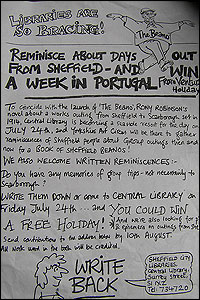 LIBRARIES ARE
SO BRACING!
The Beano
REMINISCE ABOUT DAYS OUT
FROM SHEFFIELD - AND WIN
A WEEK IN PORTUGAL From Venture Holiday
To coincide with the launch of 'The Beano', RONY ROBINSON's
novel about a works outing from Sheffield to Scarborough, set in
1914, Central Library is becoming a seaside resort for the day on
JULY 24th, and Yorkshire Art Circus will be there to gather
reminiscences of Sheffield people about group outings then and
now for a BOOK OF SHEFFIELD BEANOS!
WE ALSO WELCOME WRITTEN REMINISCENCES:-
Do you have any memories of group trips - not necessarily to
Scarborough?
WRITE THEM DOWN or come to CENTRAL LIBRARY on
Friday JULY 24th ... and YOU COULD WIN
A FREE HOLIDAY!
And we're also looking for
ephemera on outings from
Send contributions to the address below by 10th AUGUST
All work used in the book will be credited.
WRITE
BACK
SHEFFIELD CITY
LIBRARIES
Central Library,
Surrey Street,
S1 1XZ
Tel: 734720